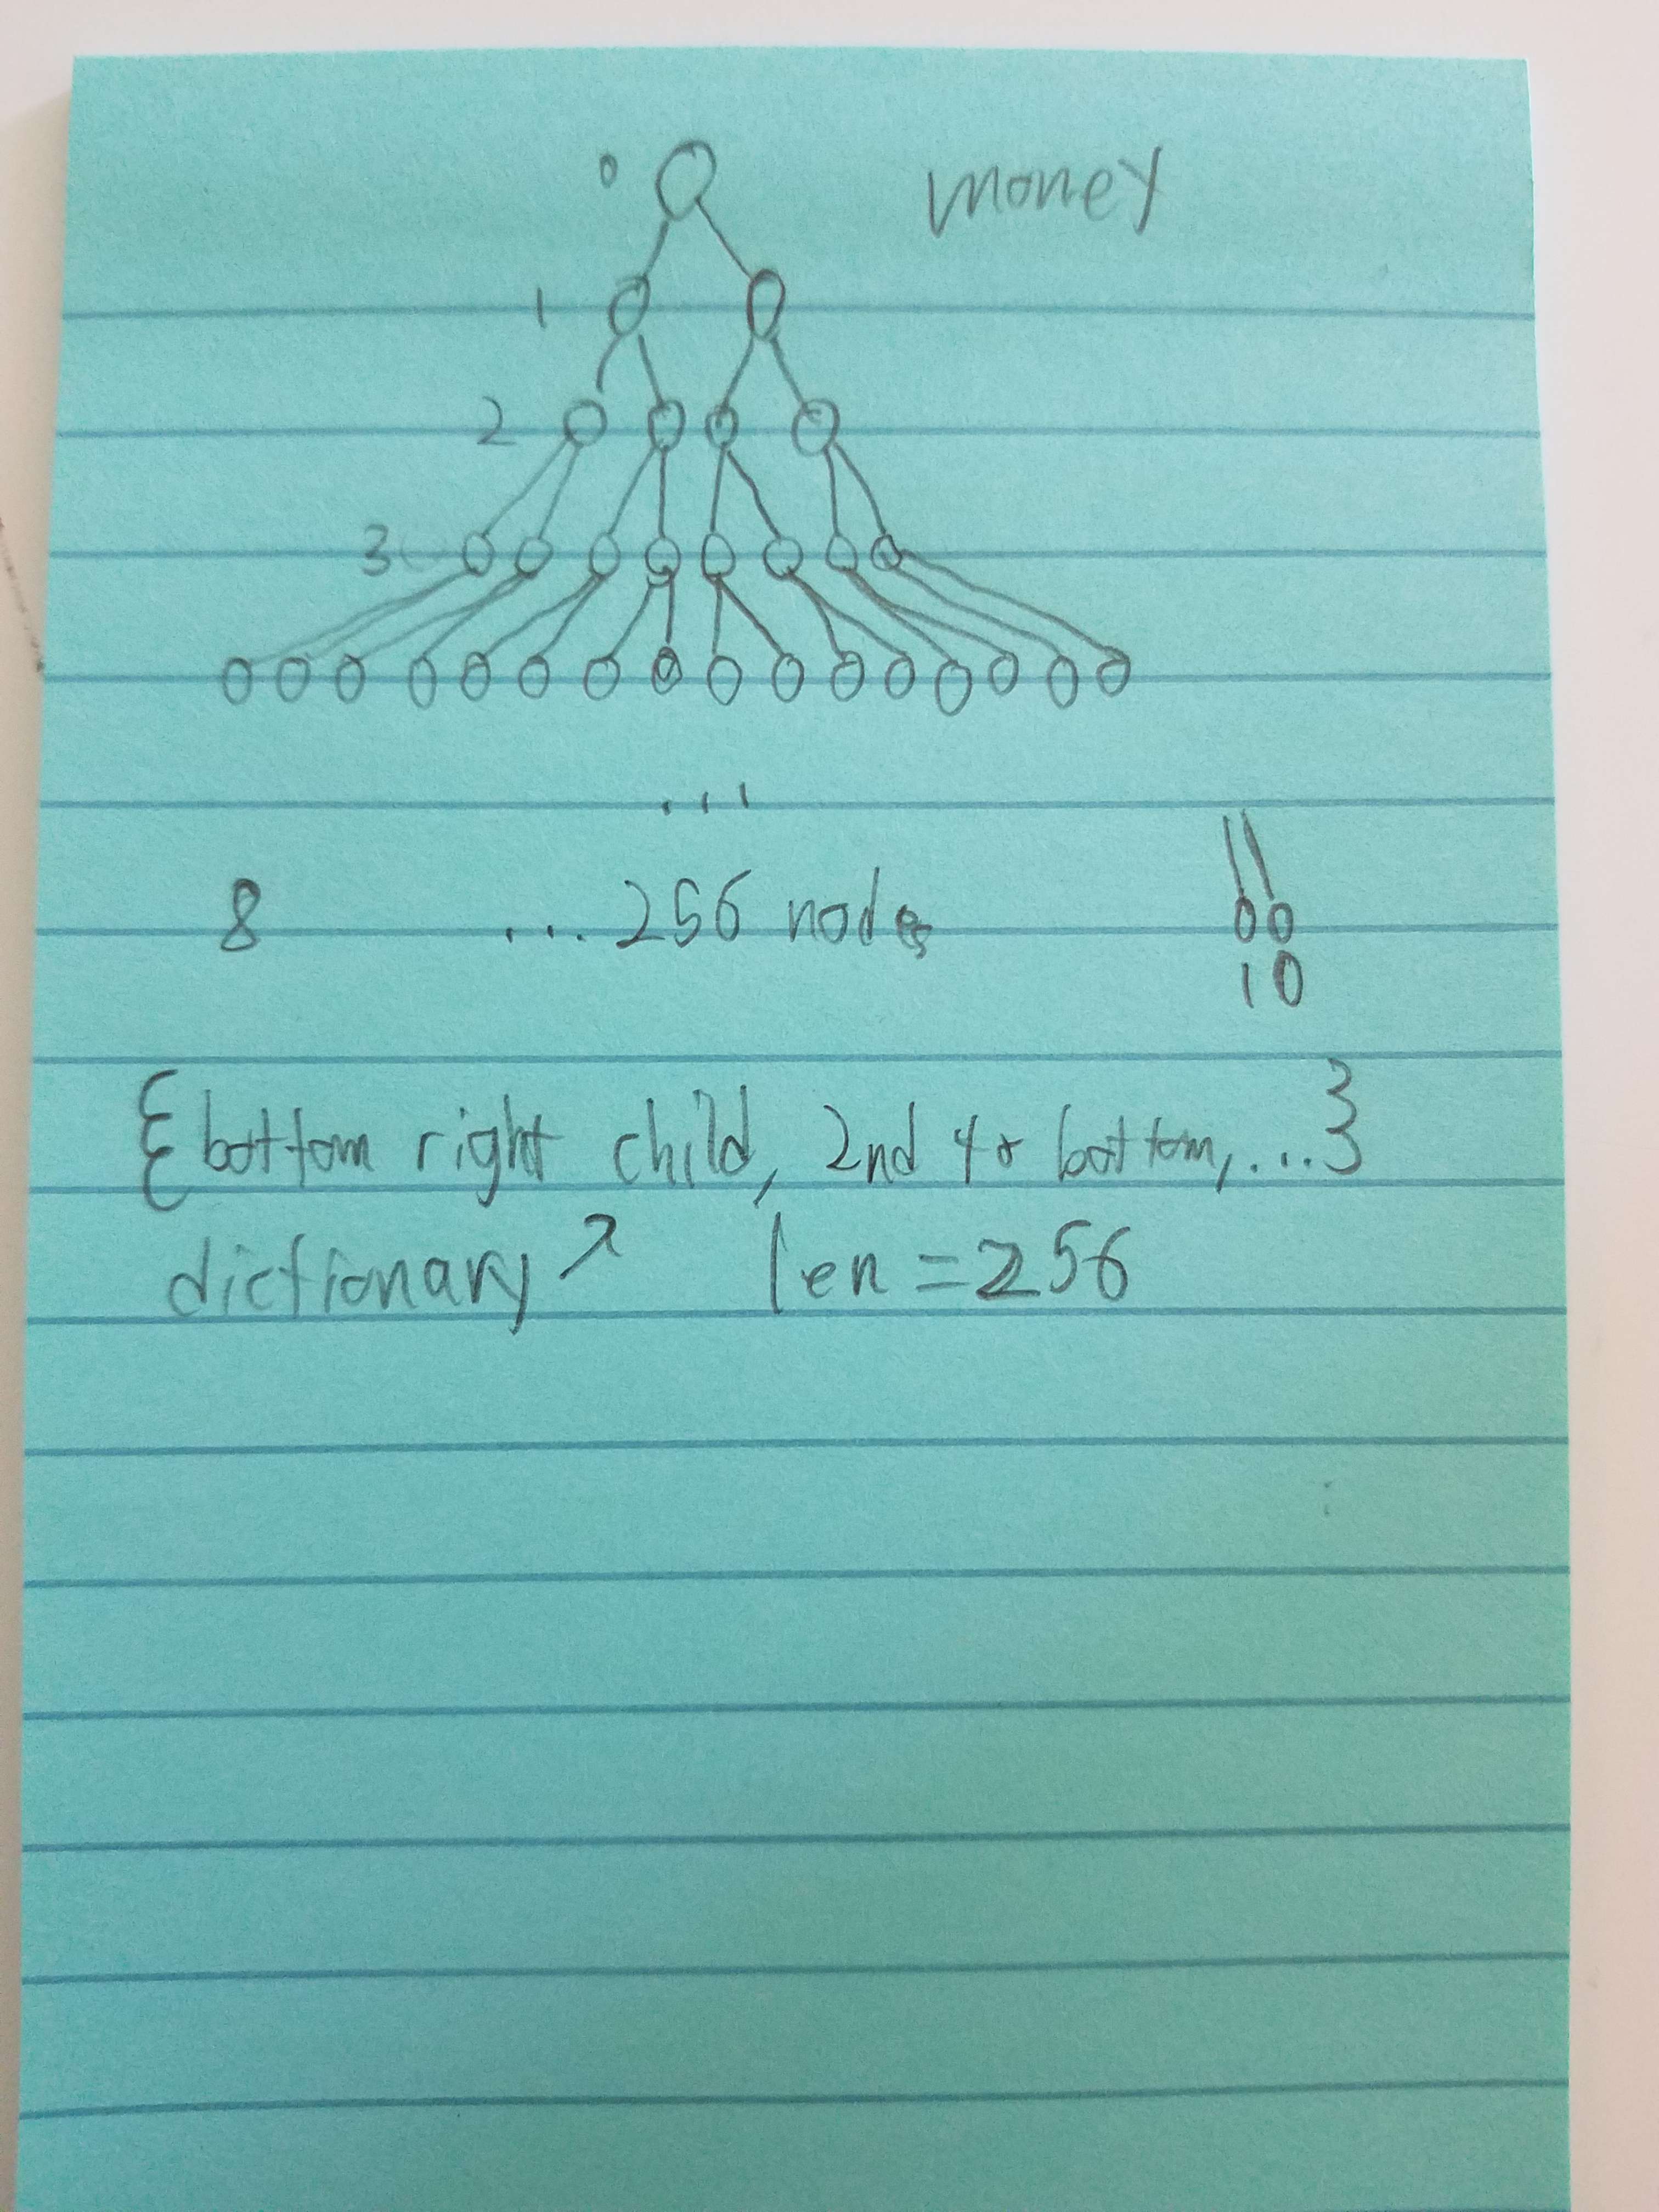 0 money
1
2
3
...
8 ...256 nodes
10
{bottom right child, 2nd to bottom,...}
dictionary↗ len=256